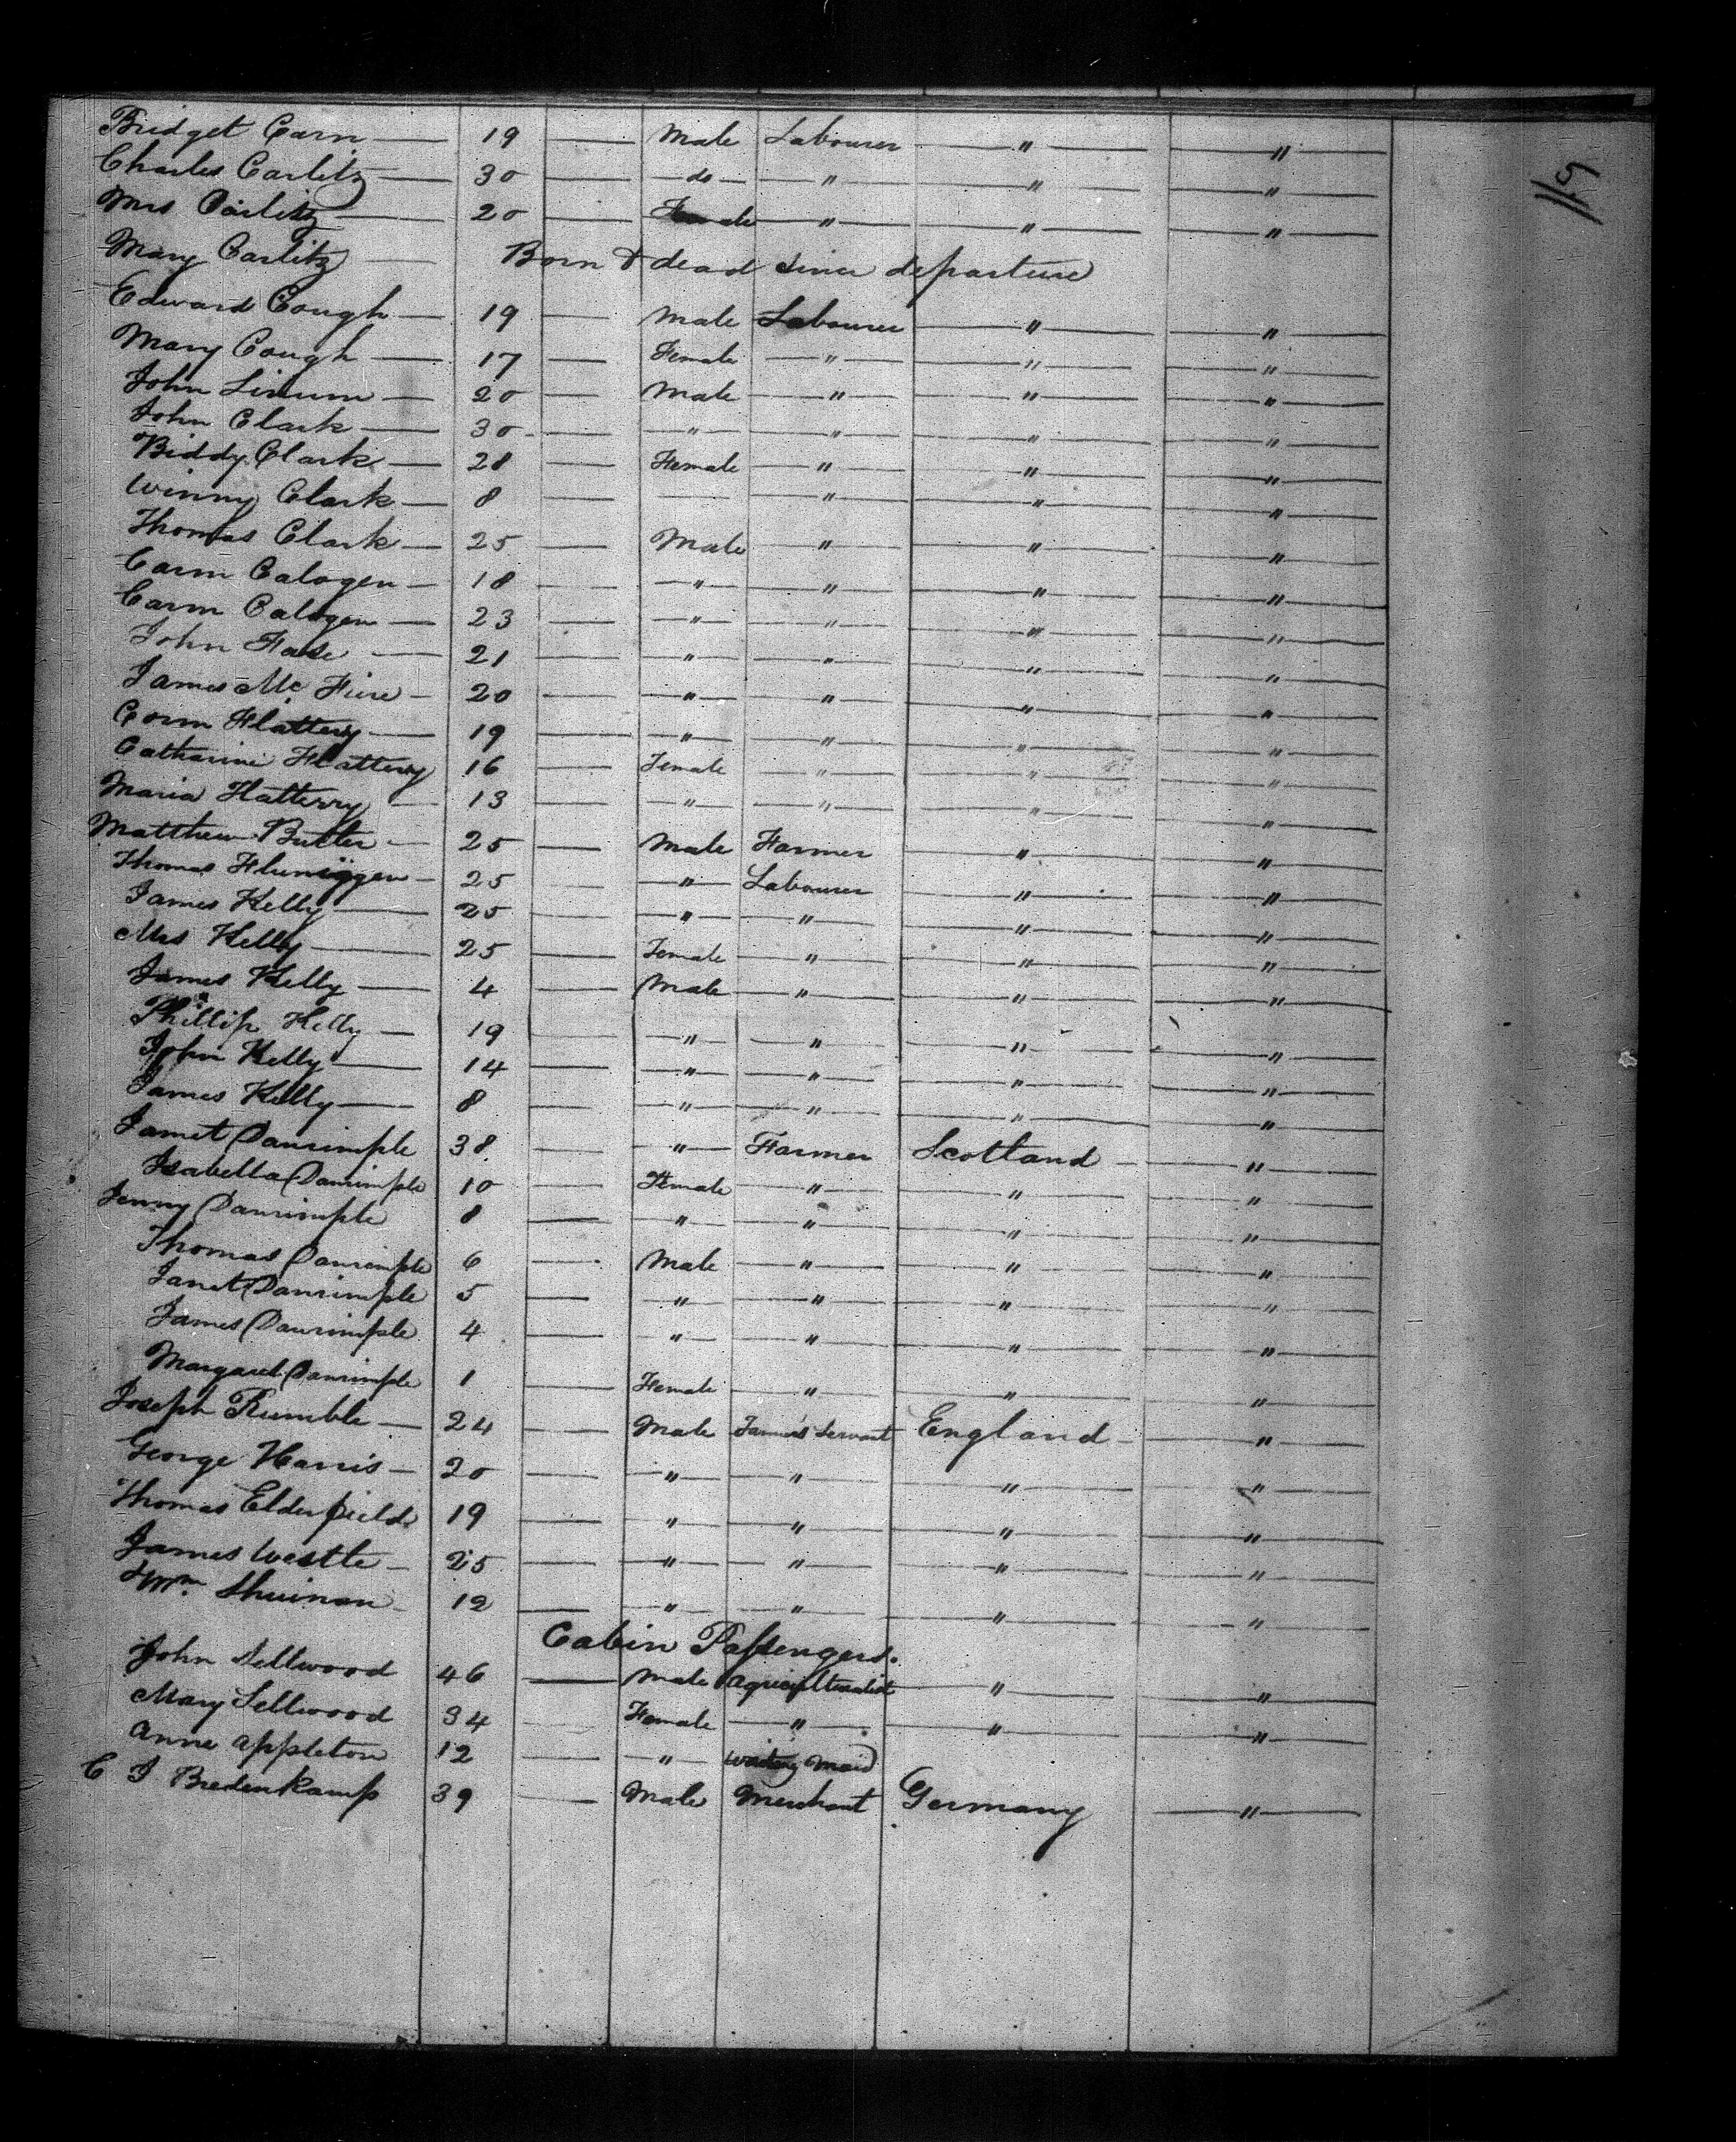 119
Bridget Carn — 19 — Male Labourer — " — — " —
Charles Carlitz — 30 — do — " — — " — — " —
Mrs Carlitz — 20 — Female — " — — " — — " —
Mary Carlitz — Born & dead since departure
Edward Cough — 19 — Male Labourer — " — — " —
Mary Cough — 17 — Female — " — — " — — " —
John Linum — 20 — Male — " — — " — — " —
John Clark — 30 — " — — " — — " — — " —
Biddy Clark — 28 — Female — " — — " — — " —
Winny Clark — 8 — — — " — — " — — " —
Thomas Clark — 25 — Male — " — — " — — " —
Carm Calogen — 18 — " — — " — — " — — " —
Carm Calogen — 23 — " — — " — — " — — " —
John Hase — 21 — " — — " — — " — — " —
James Mc Fire — 20 — " — — " — — " — — " —
Corm Flattery — 19 — " — — " — — " — — " —
Catharine Flattery 16 — Female — " — — " — — " —
Maria Flatterry — 13 — " — — " — — " — — " —
Matthew Butler — 25 — Male Farmer — " — — " —
Thomas — 25 — " — Labourer — " — — " —
James Kelly — 25 — " — — " — — " — — " —
Mrs Kelly — 25 — Female — " — — " — — " —
James Kelly — 4 — Male — " — — " — — " —
Phillip Kelly — 19 — " — — " — — " — — " —
John Kelly — 14 — " — — " — — " — — " —
James Kelly — 8 — " — — " — — " — — " —
Jamet Daurimple 38 — " — Farmer Scotland — " —
Isabella Daurimple 10 — Female — " — — " — — " —
Jenny Daurimple 8 — " — — " — — " — — " —
Thomas Daurimple 6 — Male — " — — " — — " —
Janet Daurimple 5 — " — — " — — " — — " —
James Daurimple 4 — " — — " — — " — — " —
Margaret Daurimple 1 — Female — " — — " — — " —
Joseph Rumble — 24 — Male Farmer's Servant England — " —
George Harris — 20 — " — — " — — " — — " —
Thomas Elderfield 19 — " — — " — — " — — " —
James Westle — 25 — " — — " — — " — — " —
Wm. Shuinon — 12 — " — — " — — " — — " —
Cabin Passengers.
John Sellwood 46 — Male Agriculturalist — " — — " —
Mary Sellwood 34 — Female — " — — " — — " —
Anne Appleton 12 — " — Waiting Maid
C J Bredenkamp 39 — Male Merchant Germany — " —